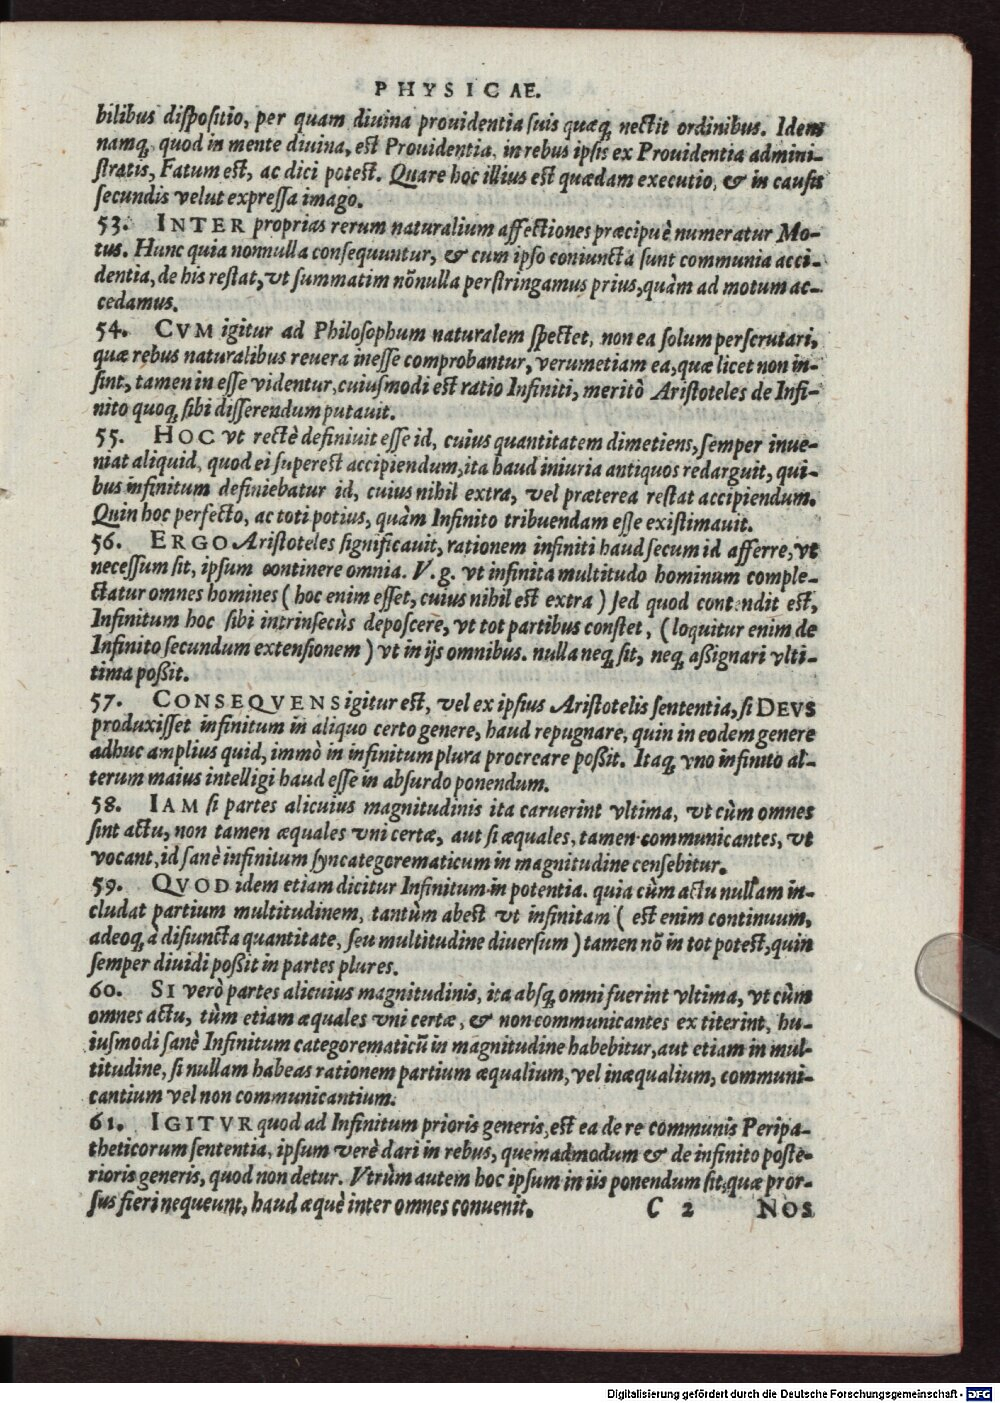 PHYSICAE.
bilibus dispositio, per quam diuina prouidentia suis quæq; nectit ordinibus. Idem
namq; quod in mente diuina, est Prouidentia, in rebus ipsis ex Prouidentia admini-
stratis, Fatum est, ac dici potest. Quare hoc illius est quædam executio, & in causis
secundis velut expressa imago.
53. INTER proprias rerum naturalium affectiones præcipuè numeratur Mo-
tus. Hunc quia nonnulla consequuntur, & cum ipso coniuncta sunt communia acci-
dentia, de his restat, vt summatim nõnulla perstringamus prius, quàm ad motum ac-
cedamus.
54. CVM igitur ad Philosophum naturalem spectet, non ea solum perscrutari,
quæ rebus naturalibus reuera inesse comprobantur, verumetiam ea, quæ licet non in-
sint, tamen in esse videntur, cuiusmodi est ratio Infiniti, meritò Aristoteles de Infi-
nito quoq; sibi disserendum putauit.
55. HOC vt rectè definiuit esse id, cuius quantitatem dimetiens, semper inue-
niat aliquid, quod ei superest accipiendum, ita haud iniuria antiquos redarguit, qui-
bus infinitum definiebatur id, cuius nihil extra, vel præterea restat accipiendum.
Quin hoc perfecto, ac toti potius, quàm Infinito tribuendam esse existimauit.
56. ERGO Aristoteles significauit, rationem infiniti haud secum id afferre, vt
necessum sit, ipsum continere omnia. V. g. vt infinita multitudo hominum comple-
ctatur omnes homines (hoc enim esset, cuius nihil est extra) sed quod contendit est,
Infinitum hoc sibi intrinsecùs deposcere, vt tot partibus constet, (loquitur enim de
Infinito secundum extensionem) vt in ijs omnibus. nulla neq; sit, neq; assignari vlti-
tima possit.
57. CONSEQVENS igitur est, vel ex ipsius Aristotelis sententia, si DEVS
produxisset infinitum in aliquo certo genere, haud repugnare, quin in eodem genere
adhuc amplius quid, immò in infinitum plura procreare possit. Itaq; vno infinito al-
terum maius intelligi haud esse in absurdo ponendum.
58. IAM si partes alicuius magnitudinis ita caruerint vltima, vt cùm omnes
sint actu, non tamen æquales vni certæ, aut si æquales, tamen communicantes, vt
vocant, id sanè infinitum syncategorematicum in magnitudine censebitur.
59. QVOD idem etiam dicitur Infinitum in potentia. quia cùm actu nullam in-
cludat partium multitudinem, tantùm abest vt infinitam (est enim continuum,
adeoq; à disiuncta quantitate, seu multitudine diuersum) tamen nõ in tot potest, quin
semper diuidi possit in partes plures.
60. SI verò partes alicuius magnitudinis, ita absq; omni fuerint vltima, vt cùm
omnes actu, tùm etiam æquales vni certæ, & non communicantes extiterint, hu-
iusmodi sanè Infinitum categorematicũ in magnitudine habebitur, aut etiam in mul-
titudine, si nullam habeas rationem partium æqualium, vel inæqualium, communi-
cantium vel non communicantium.
61. IGITVR quod ad Infinitum prioris generis, est ea de re communis Peripa-
theticorum sententia, ipsum verè dari in rebus, quemadmodum & de infinito poste-
rioris generis, quod non detur. Vtrùm autem hoc ipsum in iis ponendum sit, quæ pror-
sus fieri nequeunt, haud æquè inter omnes conuenit. C 2 NOS
Digitalisierung gefördert durch die Deutsche Forschungsgemeinschaft - DFG